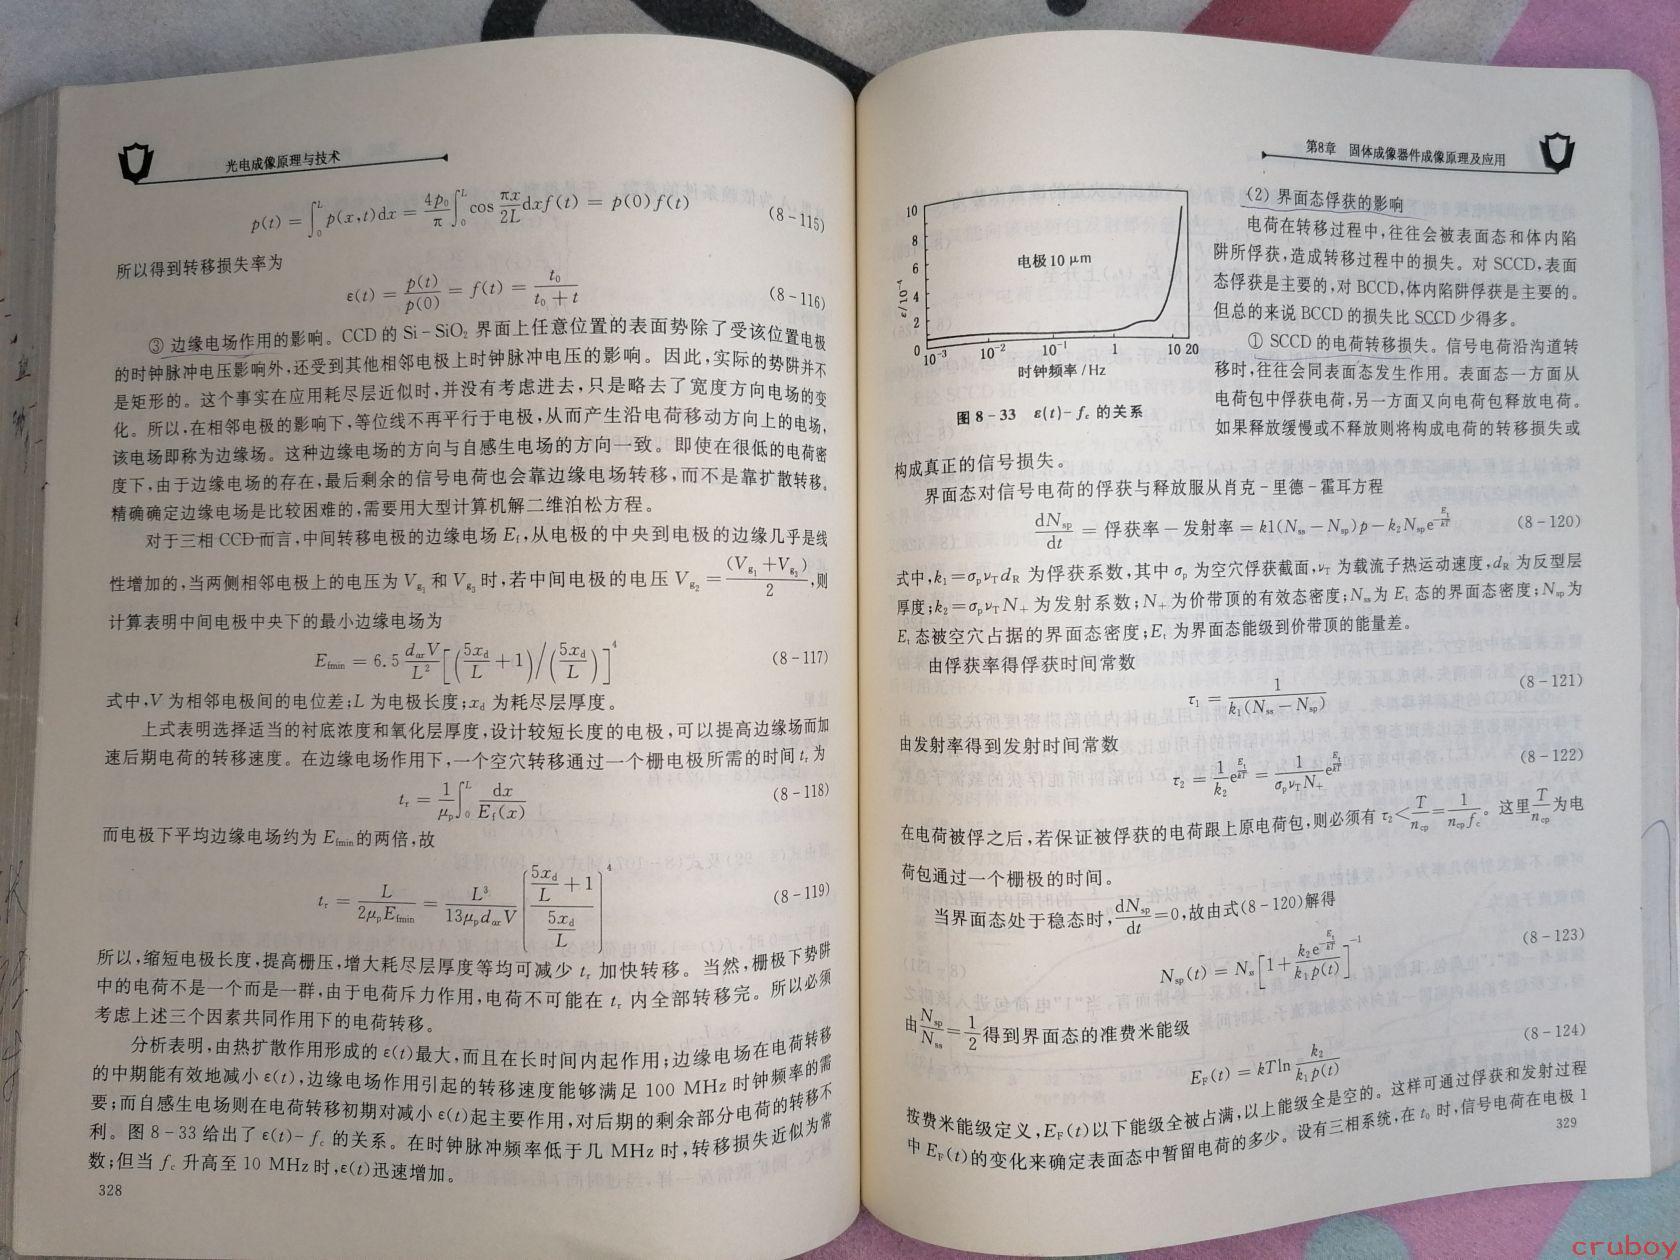 光电成像原理与技术
p(t) = ∫₀ᴸ p(x,t)dx = 4p₀/π ∫₀ᴸ cos πx/2L dxf(t) = p(0)f(t) (8-115)
所以得到转移损失率为
ε(t) = p(t)/p(0) = f(t) = t₀/(t₀ + t) (8-116)
③ 边缘电场作用的影响。CCD 的 Si-SiO₂ 界面上任意位置的表面势除了受该位置电极
的时钟脉冲电压影响外,还受到其他相邻电极上时钟脉冲电压的影响。因此,实际的势阱并不
是矩形的。这个事实在应用耗尽层近似时,并没有考虑进去,只是略去了宽度方向电场的变
化。所以,在相邻电极的影响下,等位线不再平行于电极,从而产生沿电荷移动方向上的电场,
该电场即称为边缘场。这种边缘电场的方向与自感生电场的方向一致。即使在很低的电荷密
度下,由于边缘电场的存在,最后剩余的信号电荷也会靠边缘电场转移,而不是靠扩散转移。
精确确定边缘电场是比较困难的,需要用大型计算机解二维泊松方程。
对于三相 CCD 而言,中间转移电极的边缘电场 E_f,从电极的中央到电极的边缘几乎是线
性增加的,当两侧相邻电极上的电压为 V_g₁ 和 V_g₃ 时,若中间电极的电压 V_g₂ = (V_g₁+V_g₃)/2,则
计算表明中间电极中央下的最小边缘电场为
E_fmin = 6.5 d_ox V/L² [(5x_d/L + 1)/(5x_d/L)]⁴ (8-117)
式中,V 为相邻电极间的电位差;L 为电极长度;x_d 为耗尽层厚度。
上式表明选择适当的衬底浓度和氧化层厚度,设计较短长度的电极,可以提高边缘场而加
速后期电荷的转移速度。在边缘电场作用下,一个空穴转移通过一个栅电极所需的时间 t_r 为
t_r = 1/μ_p ∫₀ᴸ dx/E_f(x) (8-118)
而电极下平均边缘电场约为 E_fmin 的两倍,故
t_r = L/(2μ_p E_fmin) = L³/(13μ_p d_ox V) [(5x_d/L + 1)/(5x_d/L)]⁴ (8-119)
所以,缩短电极长度,提高栅压,增大耗尽层厚度等均可减少 t_r 加快转移。当然,栅极下势阱
中的电荷不是一个而是一群,由于电荷斥力作用,电荷不可能在 t_r 内全部转移完。所以必须
考虑上述三个因素共同作用下的电荷转移。
分析表明,由热扩散作用形成的 ε(t)最大,而且在长时间内起作用;边缘电场在电荷转移
的中期能有效地减小 ε(t),边缘电场作用引起的转移速度能够满足 100 MHz 时钟频率的需
要;而自感生电场则在电荷转移初期对减小 ε(t)起主要作用,对后期的剩余部分电荷的转移不
利。图 8-33 给出了 ε(t)-f_c 的关系。在时钟脉冲频率低于几 MHz 时,转移损失近似为常
数;但当 f_c 升高至 10 MHz 时,ε(t)迅速增加。
328
第8章 固体成像器件成像原理及应用
10
8
6
4
2
0
ε/10⁻⁴
电极10 μm
10⁻³ 10⁻² 10⁻¹ 1 10 20
时钟频率/Hz
图 8-33 ε(t)-f_c 的关系
(2) 界面态俘获的影响
电荷在转移过程中,往往会被表面态和体内陷
阱所俘获,造成转移过程中的损失。对 SCCD,表面
态俘获是主要的,对 BCCD,体内陷阱俘获是主要的。
但总的来说 BCCD 的损失比 SCCD 少得多。
① SCCD 的电荷转移损失。信号电荷沿沟道转
移时,往往会同表面态发生作用。表面态一方面从
电荷包中俘获电荷,另一方面又向电荷包释放电荷。
如果释放缓慢或不释放则将构成电荷的转移损失或
构成真正的信号损失。
界面态对信号电荷的俘获与释放服从肖克-里德-霍耳方程
dN_sp/dt = 俘获率 - 发射率 = k1(N_ss - N_sp)p - k₂N_sp e^(-E_t/kT) (8-120)
式中,k₁=σ_pν_Td_R 为俘获系数,其中 σ_p 为空穴俘获截面,ν_T 为载流子热运动速度,d_R 为反型层
厚度;k₂=σ_pν_TN₊ 为发射系数;N₊为价带顶的有效态密度;N_ss为 E_t 态的界面态密度;N_sp为
E_t 态被空穴占据的界面态密度;E_t 为界面态能级到价带顶的能量差。
由俘获率得俘获时间常数
τ₁ = 1/(k₁(N_ss - N_sp)) (8-121)
由发射率得到发射时间常数
τ₂ = 1/k₂ e^(E_t/kT) = 1/(σ_pν_TN₊) e^(E_t/kT) (8-122)
在电荷被俘之后,若保证被俘获的电荷跟上原电荷包,则必须有 τ₂<T/n_cp=1/(n_cp f_c)。这里T/n_cp为电
荷包通过一个栅极的时间。
当界面态处于稳态时,dN_sp/dt=0,故由式(8-120)解得
N_sp(t) = N_s[1 + k₂e^(-E_t/kT)/(k₁p(t))]⁻¹ (8-123)
由N_sp/N_ss=1/2得到界面态的准费米能级
E_F(t) = kT ln k₂/(k₁p(t)) (8-124)
按费米能级定义,E_F(t)以下能级全被占满,以上能级全是空的。这样可通过俘获和发射过程
中 E_F(t)的变化来确定表面态中暂留电荷的多少。设有三相系统,在 t₀ 时,信号电荷在电极 1
329
cruboy